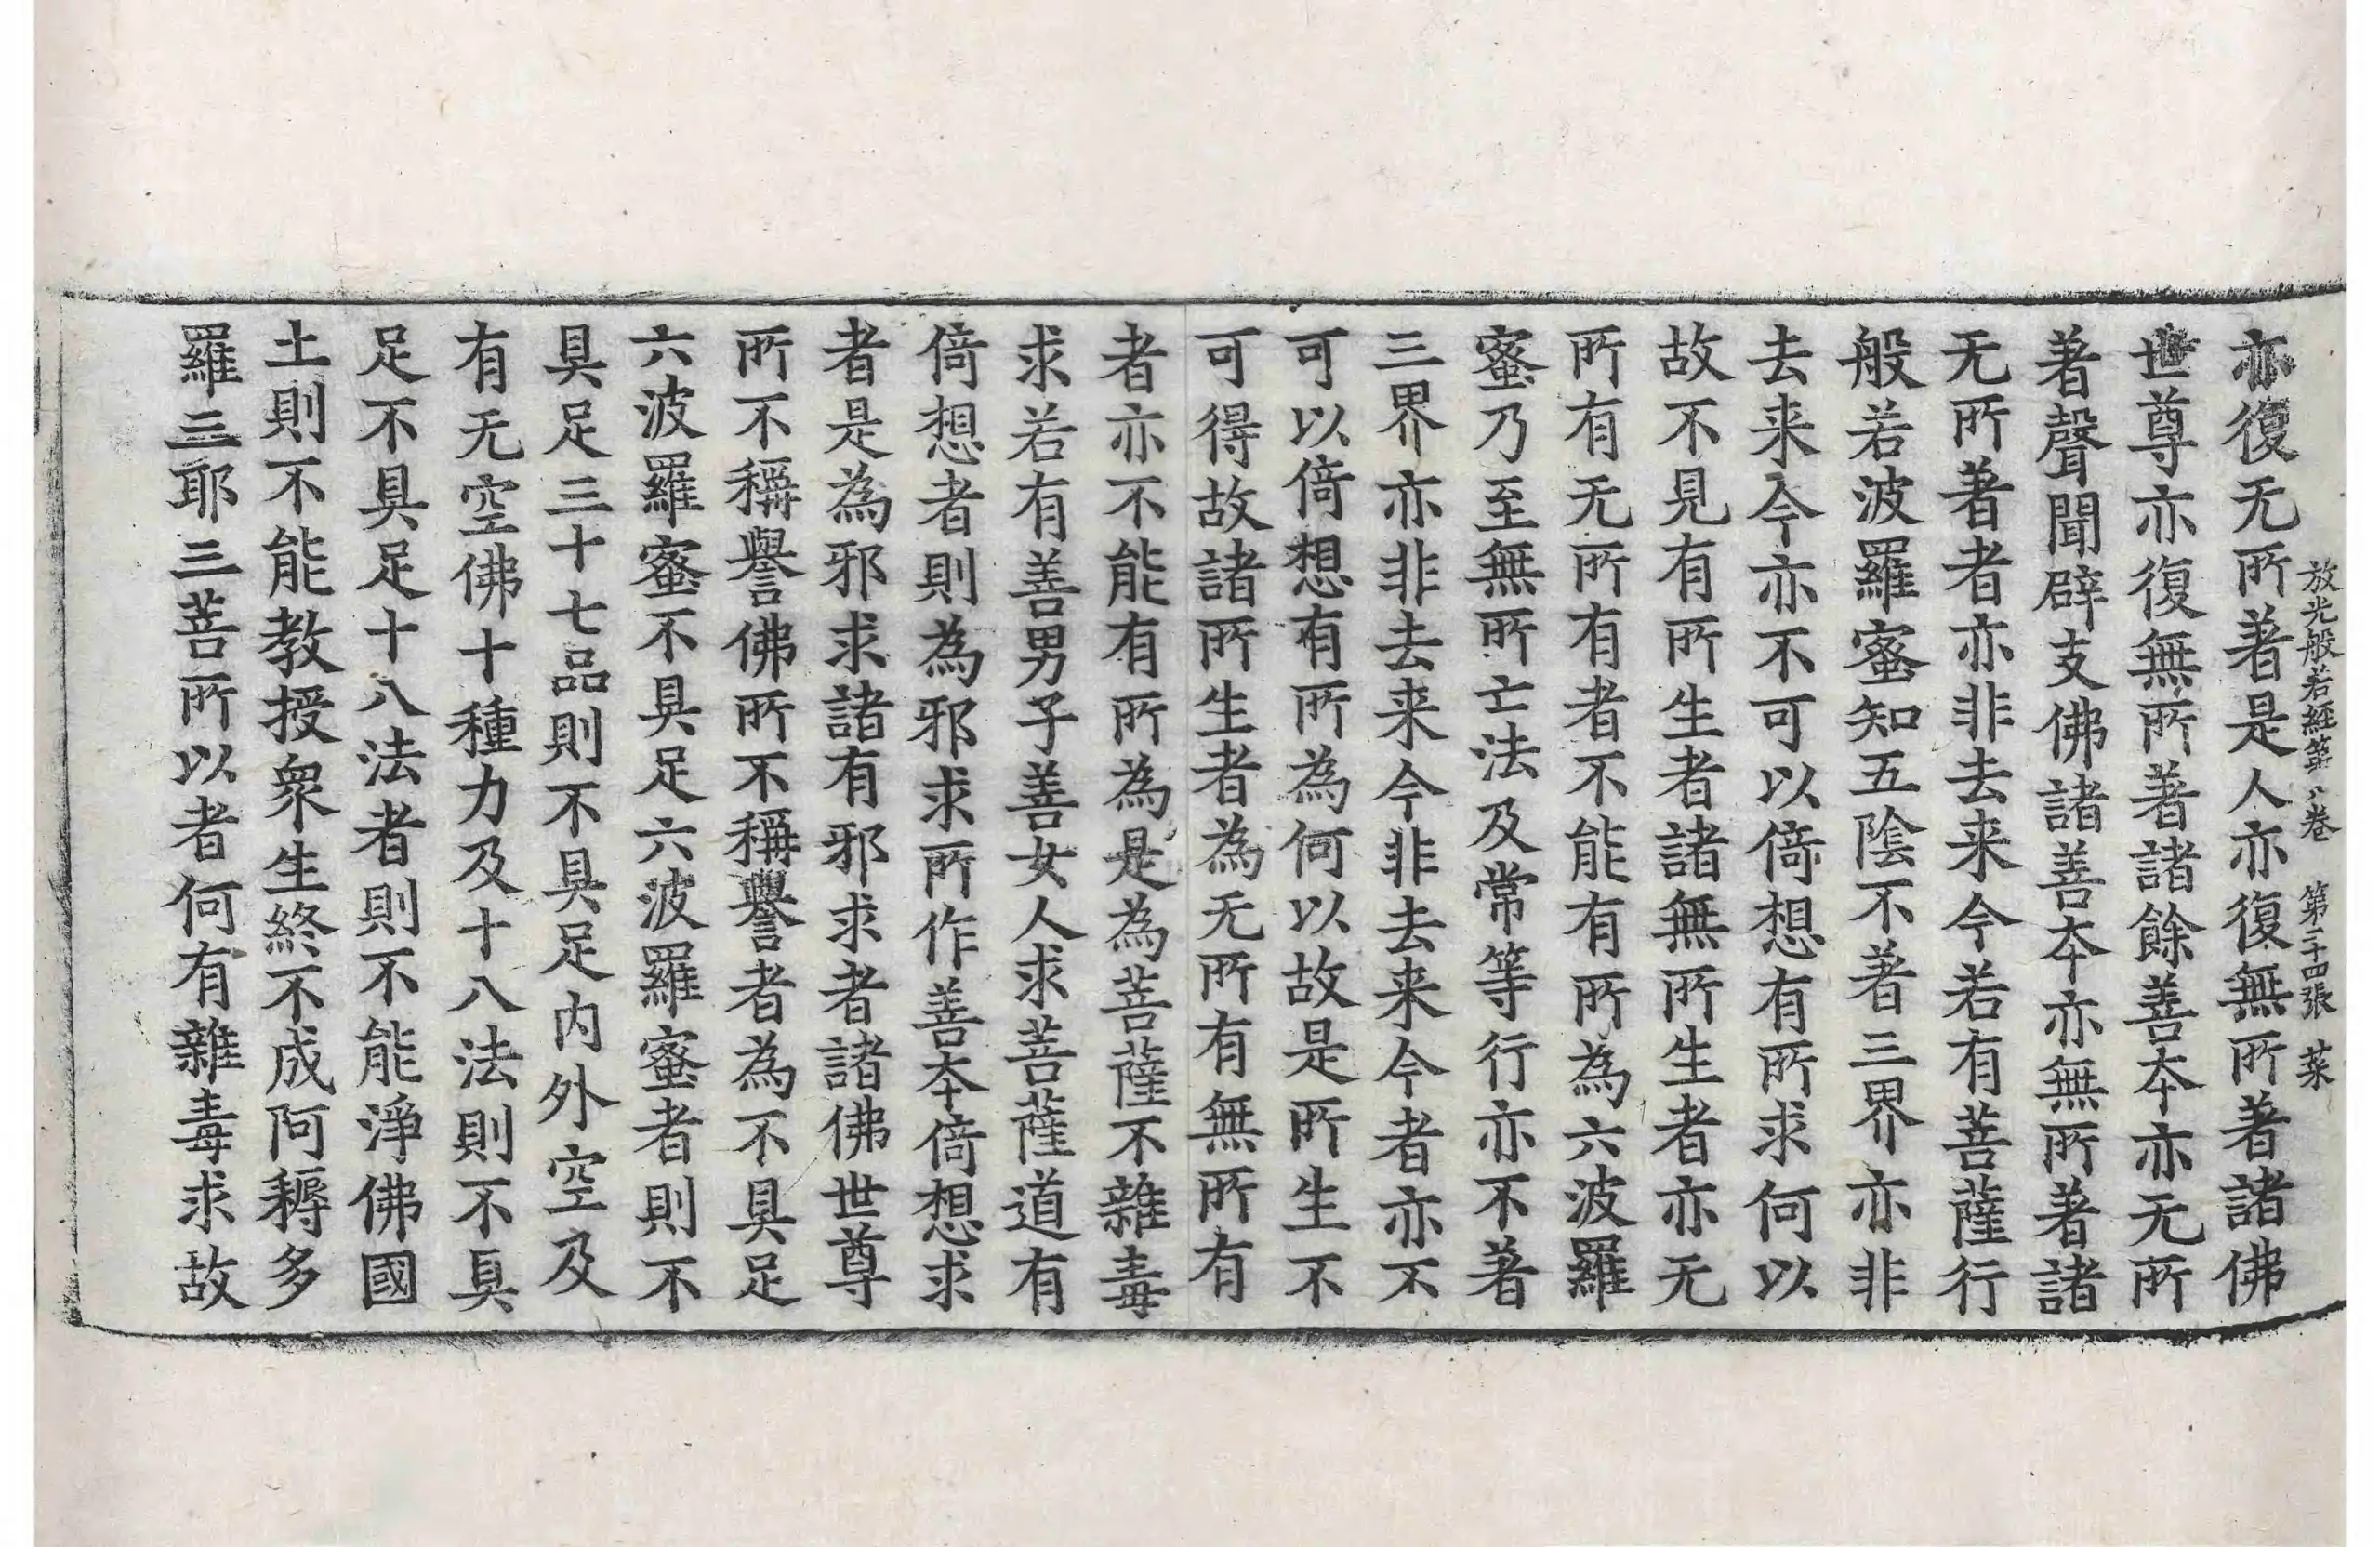 放光般若經第八卷 第二十四張 菜
亦復无所著是人亦復無所著諸佛
世尊亦復無所著諸餘善夲亦无所
著聲聞辟支佛諸善夲亦無所著諸
无所著者亦非去来今若有菩薩行
般若波羅蜜知五陰不著三界亦非
去来今亦不可以倚想有所求何以
故不見有所生者諸無所生者亦无
所有无所有者不能有所為六波羅
蜜乃至無所亡法及常等行亦不著
三界亦非去来今非去来今者亦不
可以倚想有所為何以故是所生不
可得故諸所生者為无所有無所有
者亦不能有所為是為菩薩不雜毒
求若有善男子善女人求菩薩道有
倚想者則為邪求所作善夲倚想求
者是為邪求諸有邪求者諸佛世尊
所不稱譽佛所不稱譽者為不具足
六波羅蜜不具足六波羅蜜者則不
具足三十七品則不具足內外空及
有无空佛十種力及十八法則不具
足不具足十八法者則不能淨佛國
土則不能教授衆生終不成阿耨多
羅三耶三菩所以者何有雜毒求故